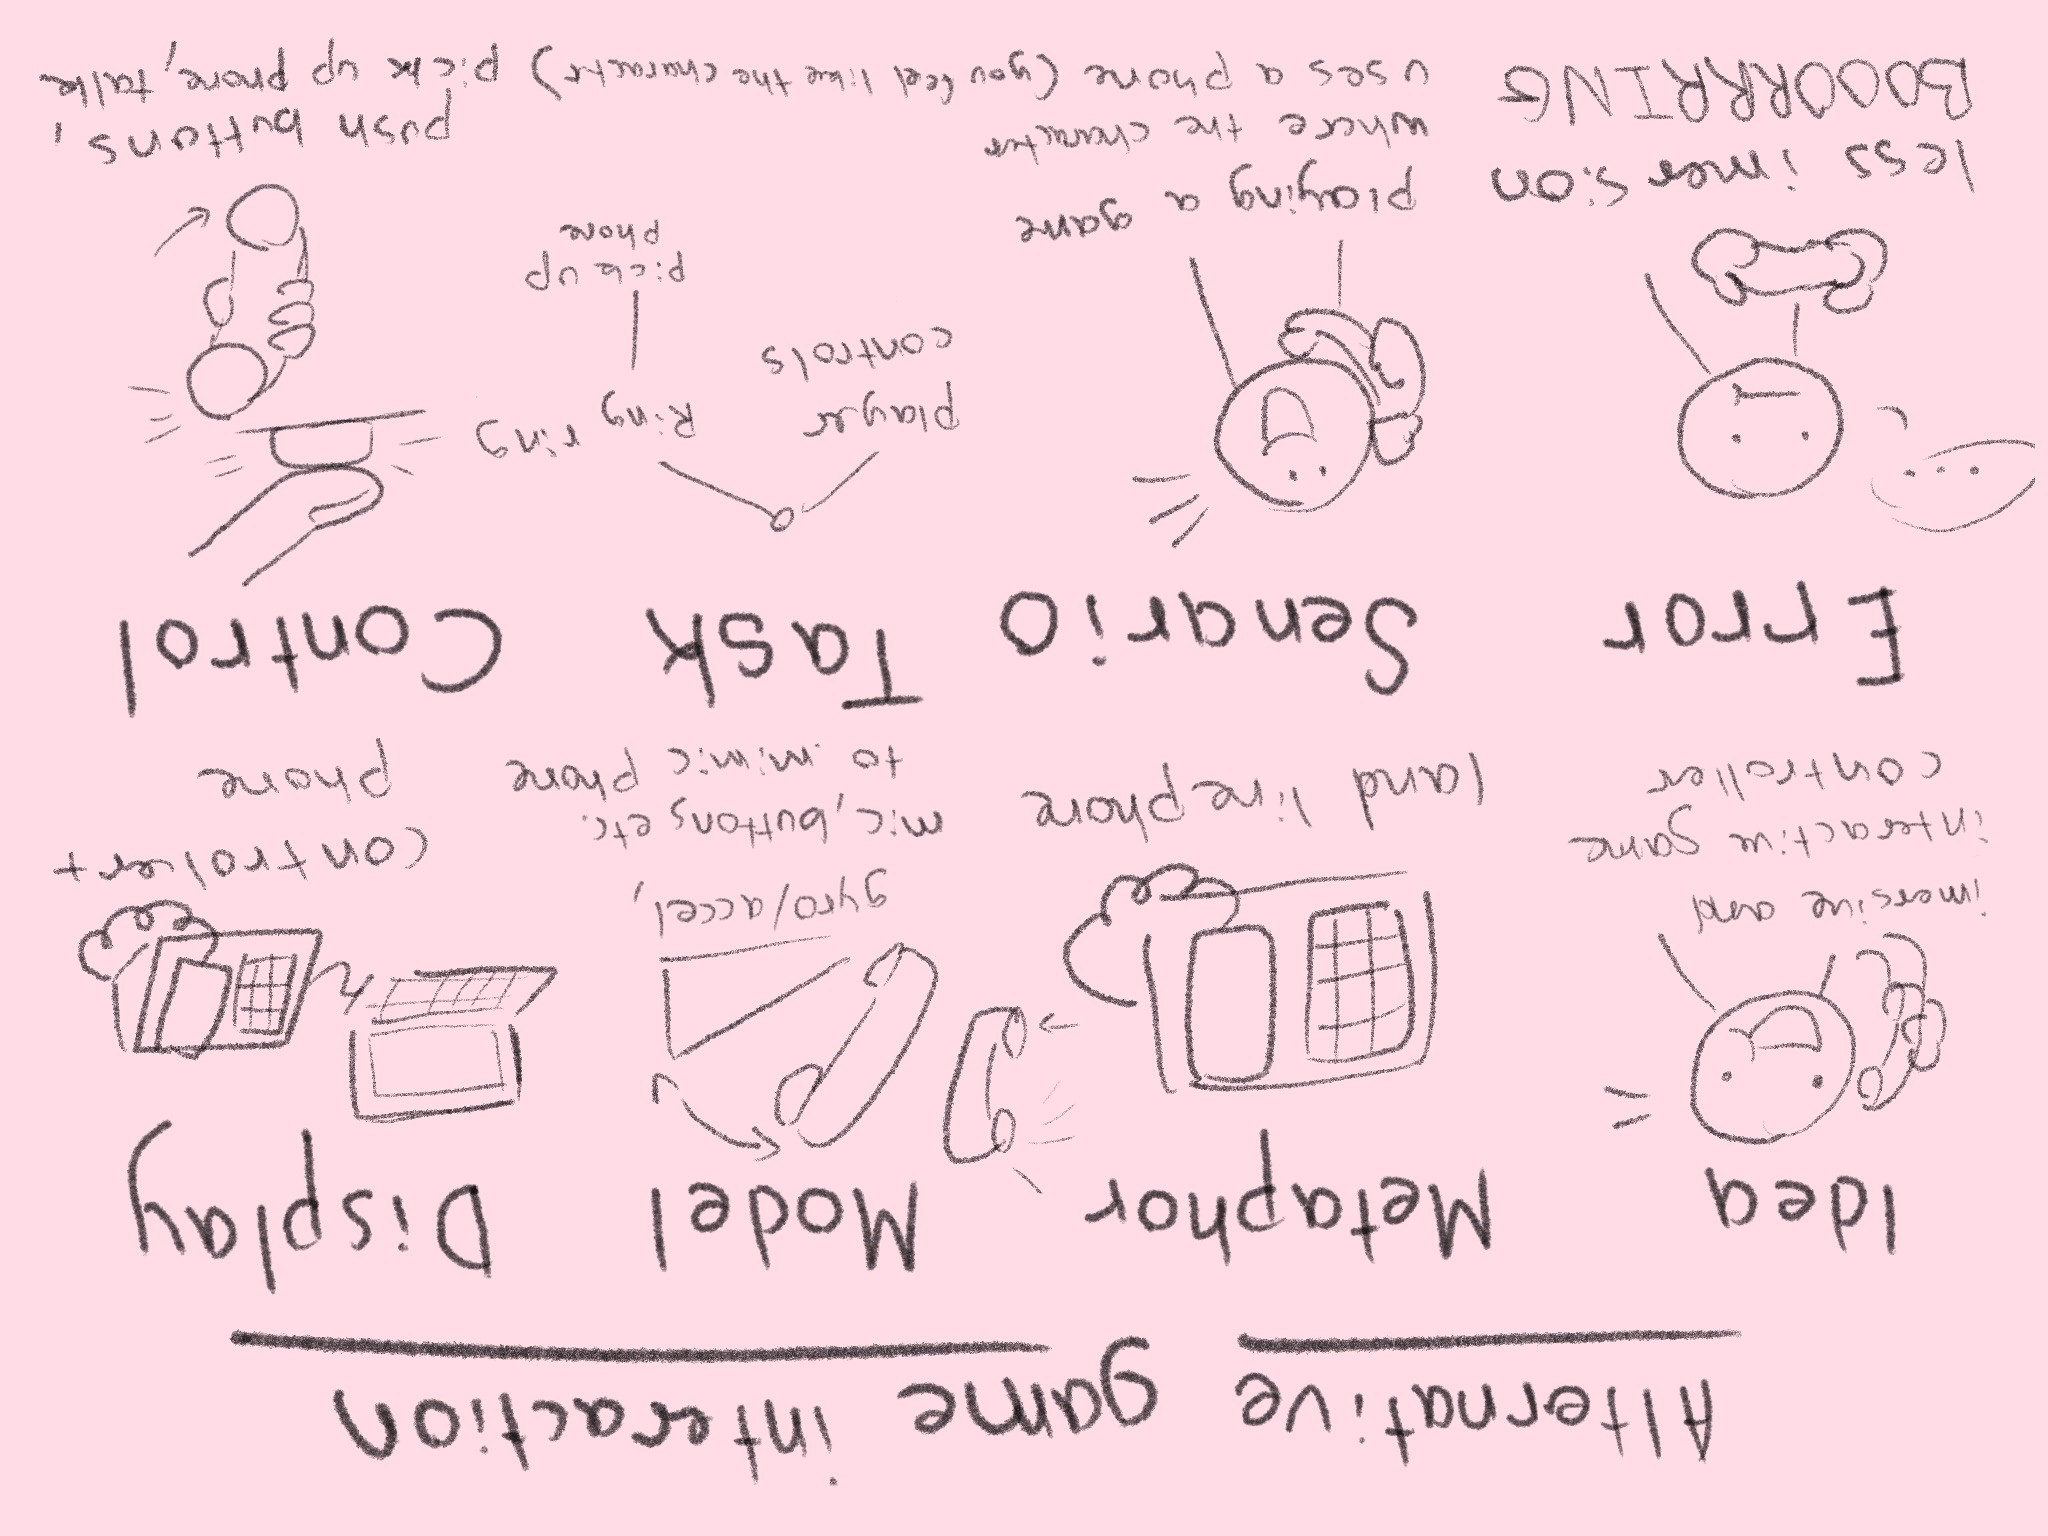 Alternative game interaction
Idea
imersive and
interactive game
controller
Metaphor
land line phone
Model
gyro/accel,
mic, buttons etc.
to mimic phone
Display
controller +
phone
Error
less imersion
BOOORRING
Senario
playing a game
where the character
uses a phone (you feel like the character)
Task
player
controls
Ring ring
pick up
phone
Control
push buttons,
pick up phone, talk